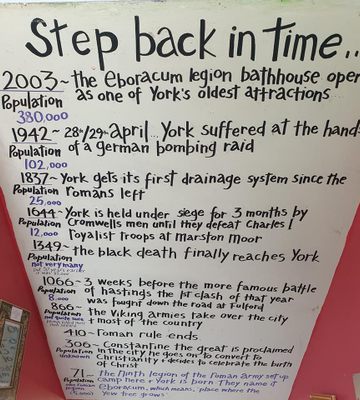 Step back in time..
2003~ the eboracum legion bathhouse open
Population as one of York's oldest attractions
380,000
1942~ 28th/29th april... York suffered at the hand
Population of a german bombing raid
102,000
1837~ York gets its first drainage system since the
Population romans left
25,000
1644~ York is held under siege for 3 months by
Population Cromwells men until they defeat Charles I
12,000 royalist troops at marston moor
1349~ the black death finally reaches York
Population
not very many
1066~ 3 weeks before the more famous battle
Population of hastings the 1st clash of that year
8,000 was fought down the road at Fulford
866~ the Viking armies take over the city
Population + most of the country
not quite sure
410~ roman rule ends
306~ Constantine the great is proclaimed
Population in the city he goes on to convert to
unknown Christianity + decides to celebrate the birth
of Christ
71~ the ninth legion of the roman army set up
camp here + York is born They name it
eboracum, which means, 'place where the
yew tree grows'